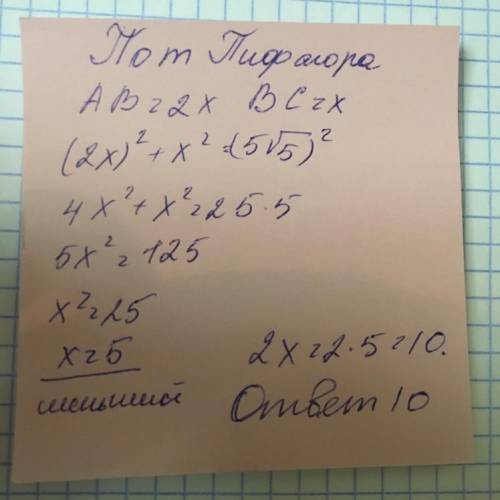 По т Пифагора
AB = 2x BC = x
(2x)² + x² = (5√5)²
4x² + x² = 25·5
5x² = 125
x² = 25
x = 5
2x = 2·5 = 10.
меньший
Ответ 10